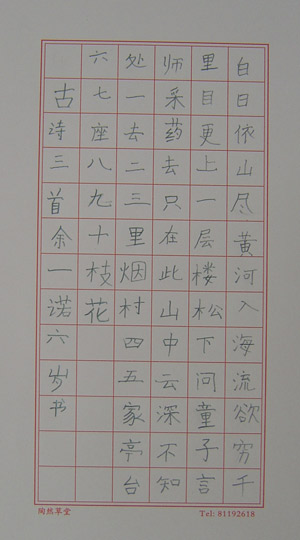 白日依山尽黄河入海流欲穷千
里目更上一层楼松下问童子言
师采药去只在此山中云深不知
处一去二三里烟村四五家亭台
六七座八九十枝花
古诗三首余一诺六岁书
陶然草堂
Tel: 81192618